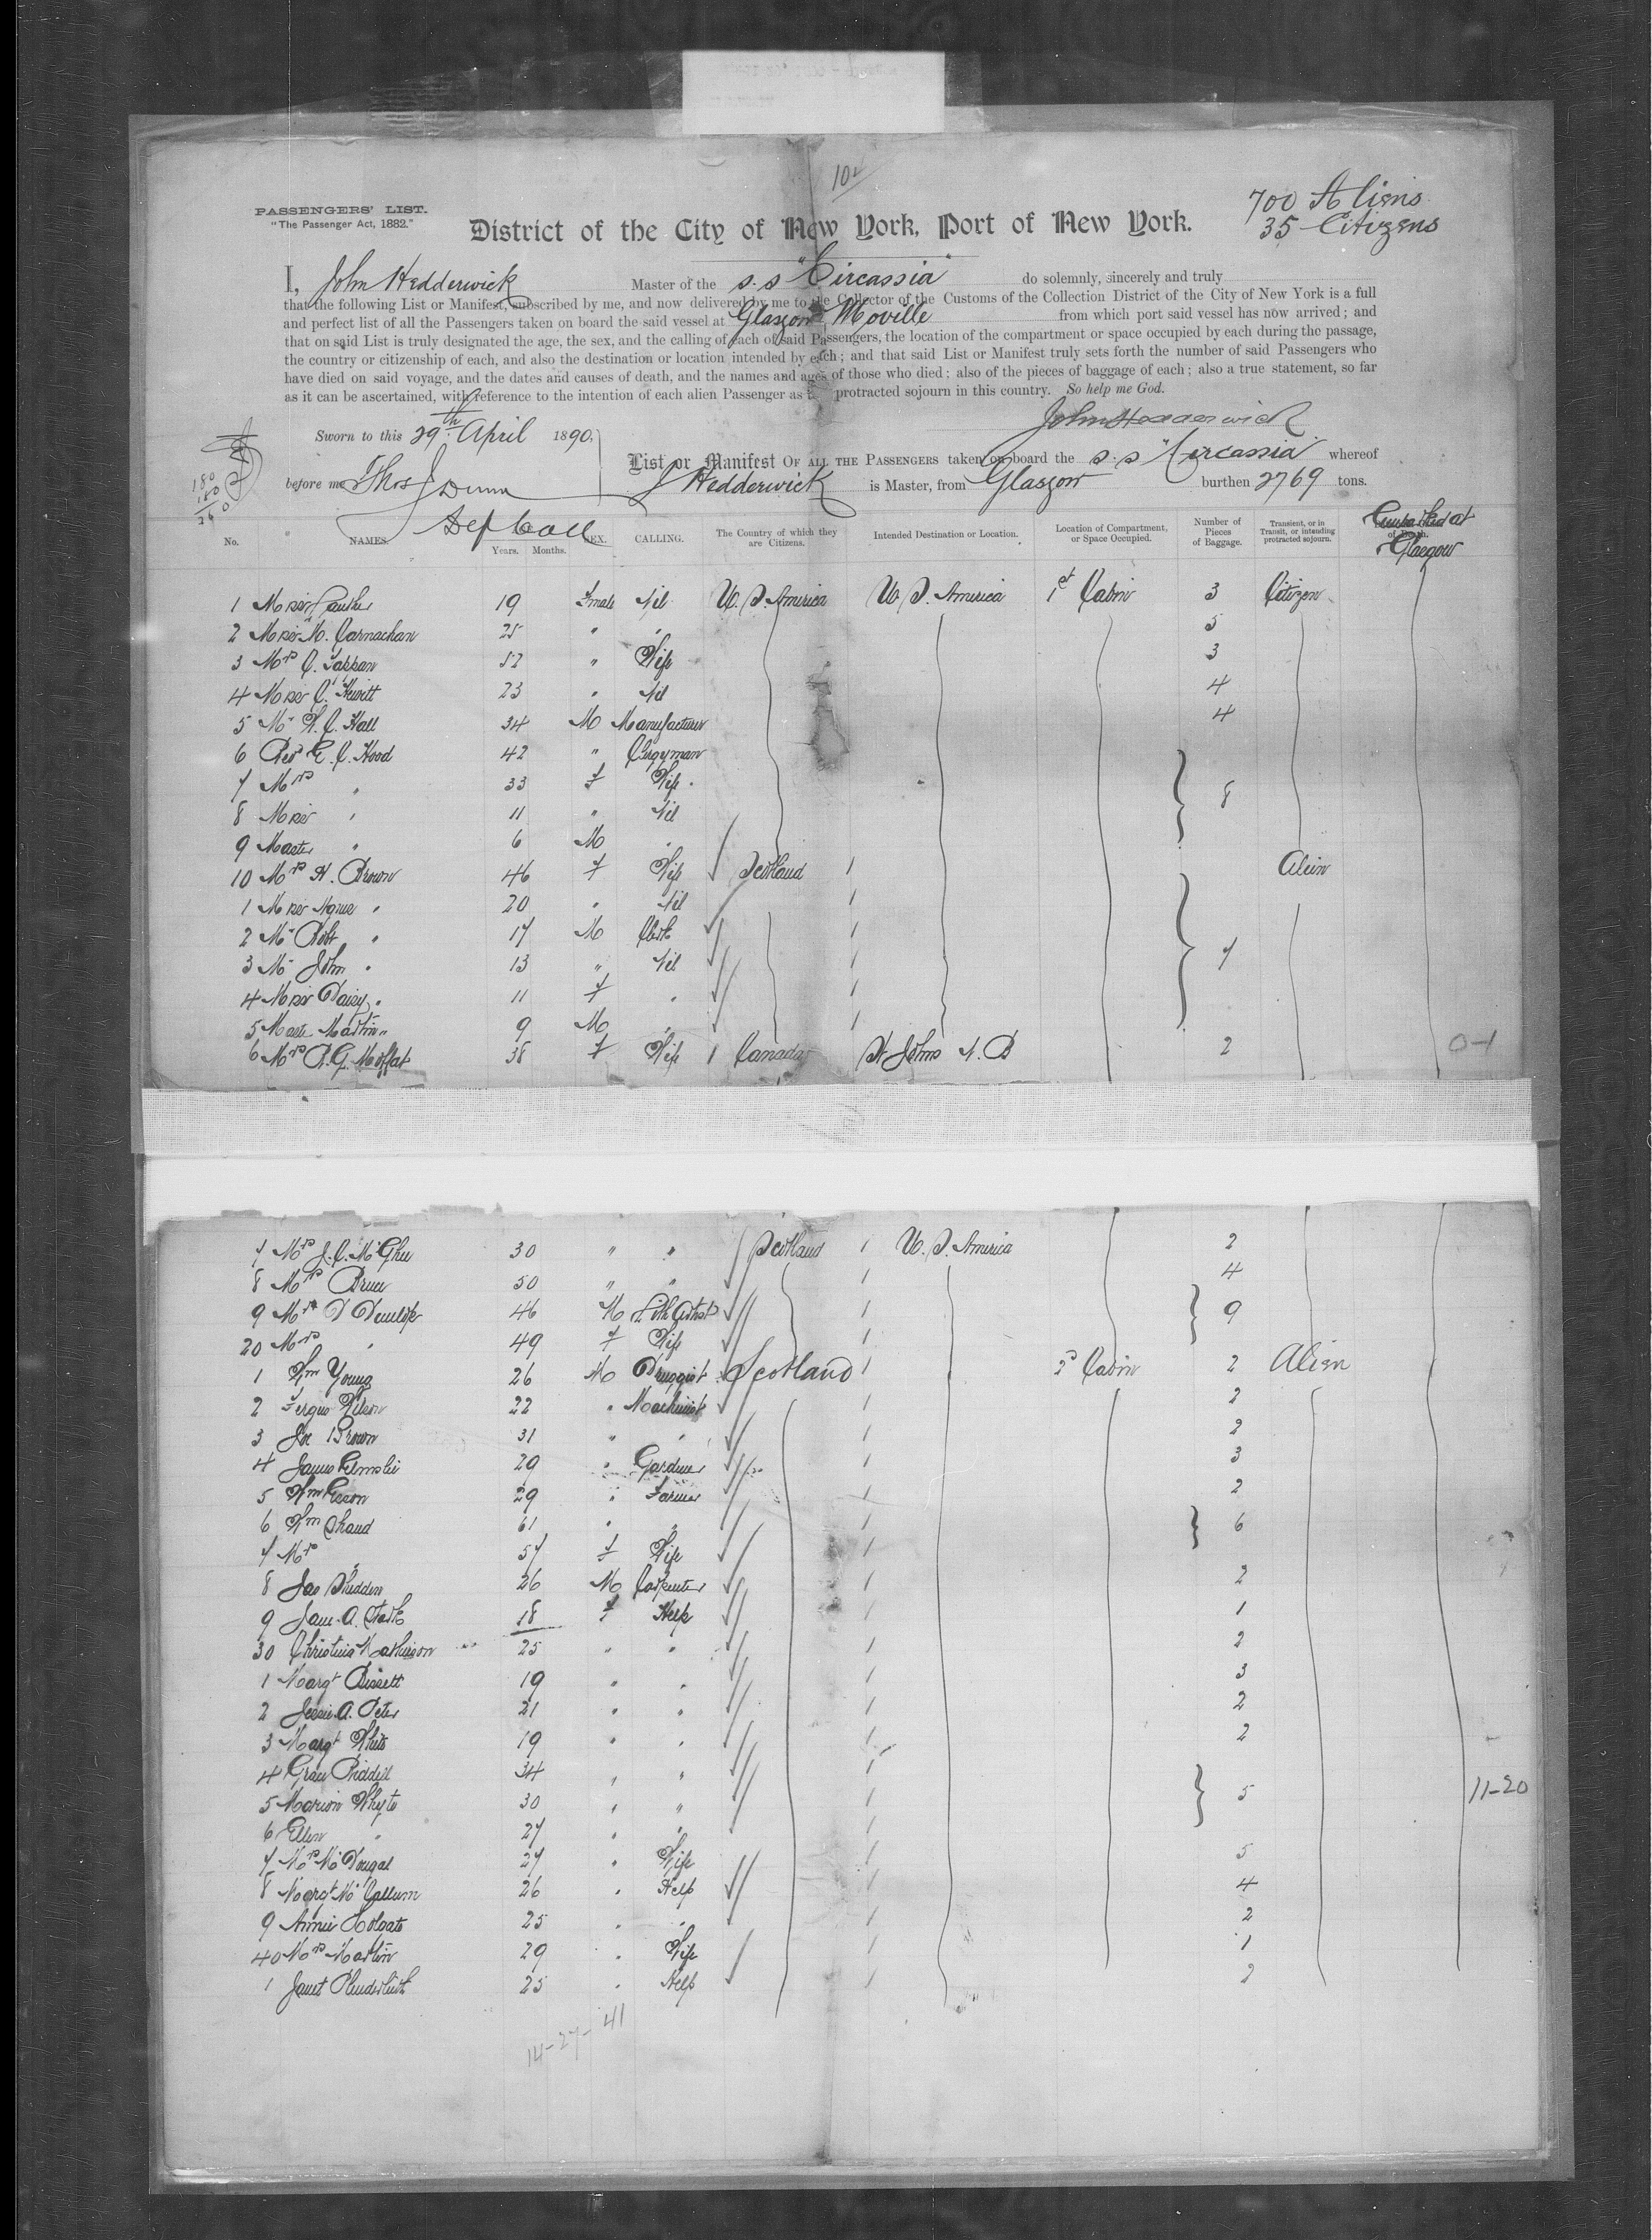 10
700 Aliens
35 Citizens
PASSENGERS' LIST.
"The Passenger Act, 1882."
District of the City of New York, Port of New York.
I, John Hedderwick Master of the s.s "Circassia" do solemnly, sincerely and truly
that the following List or Manifest, subscribed by me, and now delivered by me to the Collector of the Customs of the Collection District of the City of New York is a full
and perfect list of all the Passengers taken on board the said vessel at Glasgow Moville from which port said vessel has now arrived; and
that on said List is truly designated the age, the sex, and the calling of each of said Passengers, the location of the compartment or space occupied by each during the passage,
the country or citizenship of each, and also the destination or location intended by each; and that said List or Manifest truly sets forth the number of said Passengers who
have died on said voyage, and the dates and causes of death, and the names and ages of those who died; also of the pieces of baggage of each; also a true statement, so far
as it can be ascertained, with reference to the intention of each alien Passenger as to protracted sojourn in this country. So help me God.
John Hedderwick
Sworn to this 29th April 1890,
List or Manifest OF ALL THE PASSENGERS taken on board the s.s "Circassia" whereof
before me Thos J Dunn J Hedderwick is Master, from Glasgow burthen 2769 tons.
180
180
260
Dep Coll
Embarked at
Glasgow
No. NAMES. Years. Months. SEX. CALLING. The Country of which they are Citizens. Intended Destination or Location. Location of Compartment, or Space Occupied. Number of Pieces of Baggage. Transient, or in Transit, or intending protracted sojourn.
1 Miss 19 Female Nil U.S. America U.S. America 1st Cabin 3 Citizen
2 Miss M. Carnachan 25 " " 5
3 Mrs C. Tappan 52 " Wife 3
4 Miss C. Hewitt 23 " Nil 4
5 Mr W. C. Hall 34 M Manufacturer 4
6 Revd E. C. Hood 42 " Clergyman
7 Mrs " 33 F Wife 8
8 Miss " 11 " Nil
9 Master " 6 M "
10 Mrs H. Brown 46 F Wife Scotland Alien
1 Miss Agnes " 20 " Nil
2 Mr Robt " 17 M Clerk
3 Mr John " 13 " Nil 7
4 Miss Daisy " 11 F "
5 Master Martin " 9 M "
6 Mrs R. G. Moffat 38 F Wife Canada St Johns N. B 2 0-1
7 Mrs J. C. McGhee 30 " " Scotland U.S. America 2
8 Mrs Bruce 50 " " 4
9 Mr D Dunlop 46 M Lith Artist 9
20 Mrs " 49 F Wife
1 Wm Young 26 M Druggist Scotland 2d Cabin 2 Alien
2 Fergus Wilson 22 " Machinist 2
3 Joe Brown 31 " " 2
4 James Elmslie 29 " Gardner 3
5 Wm 29 " Farmer 2
6 Wm Shand 61 " " 6
7 Mrs " 57 F Wife
8 Jas Shedden 26 M Carpenter 2
9 Jane A. Stark 18 F Help 1
30 Christina Mathieson 25 " " 2
1 Margt Bissett 19 " " 3
2 Jessie A. Peter 21 " " 2
3 Margt White 19 " " 2
4 Grace Riddell 34 " "
5 Marion Whyte 30 " " 5 11-20
6 Ellen " 27 " "
7 Mrs McDougal 27 " Wife 5
8 Margt McCallum 26 " Help 4
9 Annie Holgate 25 " " 2
40 Mrs Martin 29 " Wife 1
1 Janet Plenderleith 25 " Help 2
14-27-41